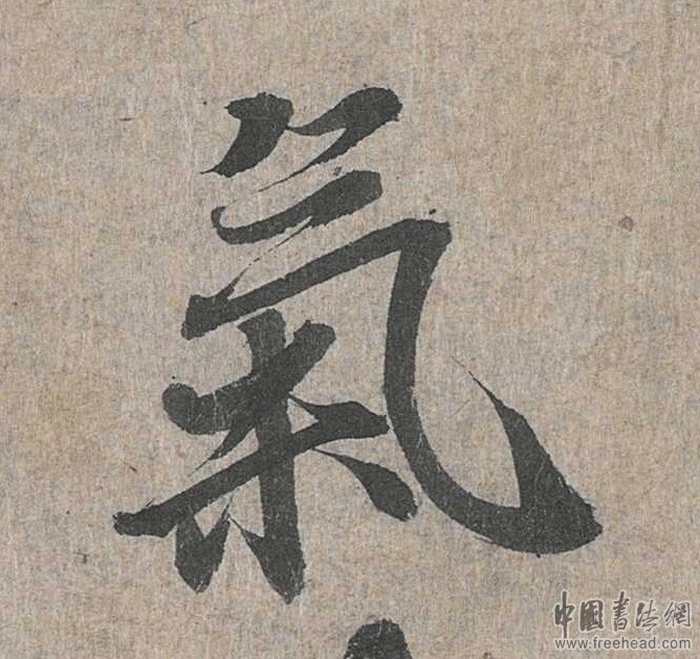 氣
中國書法網
www.freehead.com